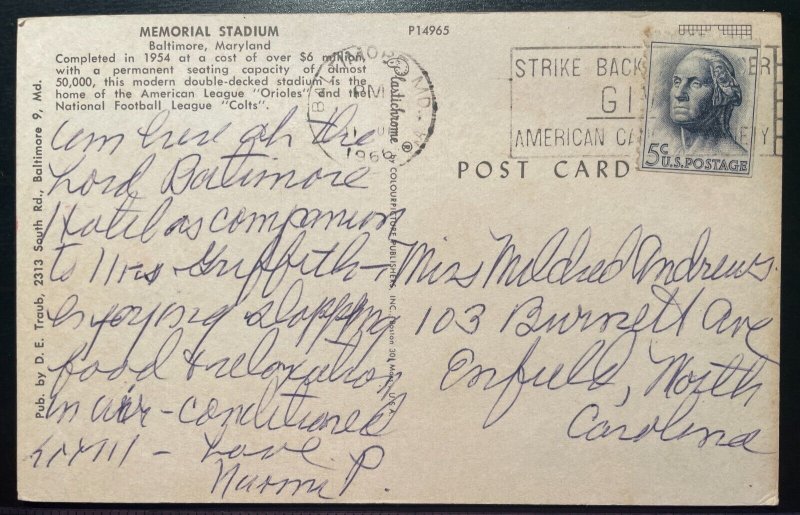 MEMORIAL STADIUM
Baltimore, Maryland
Completed in 1954 at a cost of over $6 million,
with a permanent seating capacity of almost
50,000, this modern double-decked stadium is the
home of the American League "Orioles" and the
National Football League "Colts".
P14965
Pub. by D. E. Traub, 2313 South Rd., Baltimore 9, Md.
Plastichrome ® by COLOURPICTURE PUBLISHERS, INC., Boston 30, Mass., U.S.A.
BALTIMORE, MD.
PM
STRIKE BACK
GI
AMERICAN CA
5c U.S. POSTAGE
POST CARD
am here at the
Lord Baltimore
Hotel as companion
to Mrs Griffith -
enjoying shopping
food & relaxation
in air-conditioned
- Love
Naomi P.
Miss Mildred Andrews
103 Burnett Ave
Enfield, North
Carolina